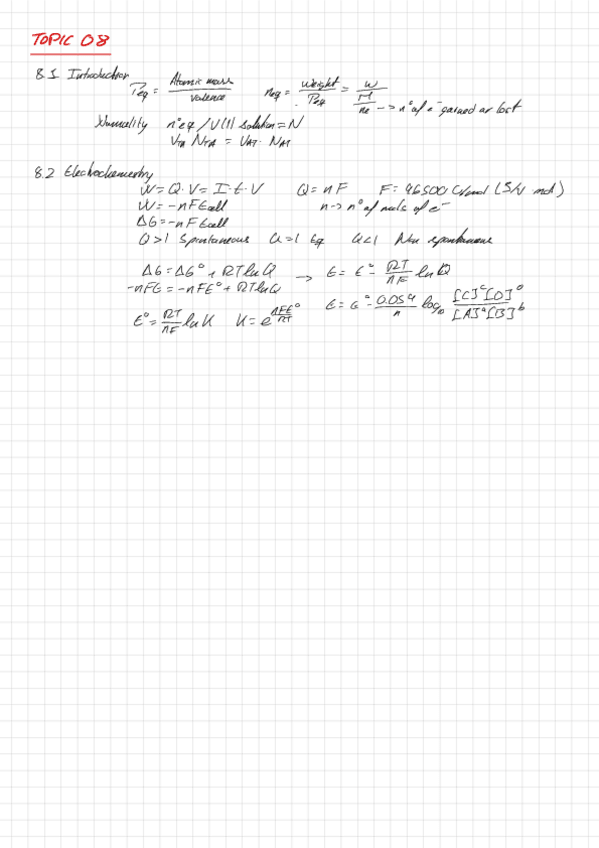 TOPIC 08
8.1 Introduction
Peq = Atomic mass / valence    neq = Weight / Peq = w / (M / ne) --> nº of e⁻ gained or lost
Normality    nºeq / V(l) solution = N
V_TA N_TA = V_AT · N_AT
8.2 Electrochemistry
W = Q · V = I · t · V    Q = nF    F = 96500 C/mol (J/V mol)
W = -nFEcell    n -> nº of mols of e⁻
ΔG = -nFEcell
Q>1 Spontaneous    Q=1 Eq    Q<1 Non spontaneous
ΔG = ΔGº + RTlnQ → E = Eº - RT/nF lnQ
-nFE = -nFEº + RTlnQ
Eº = RT/nF lnK    K = e^(nFEº/RT)    E = Eº - 0.059/n log₁₀ [C]^c[D]^d / [A]^a[B]^b